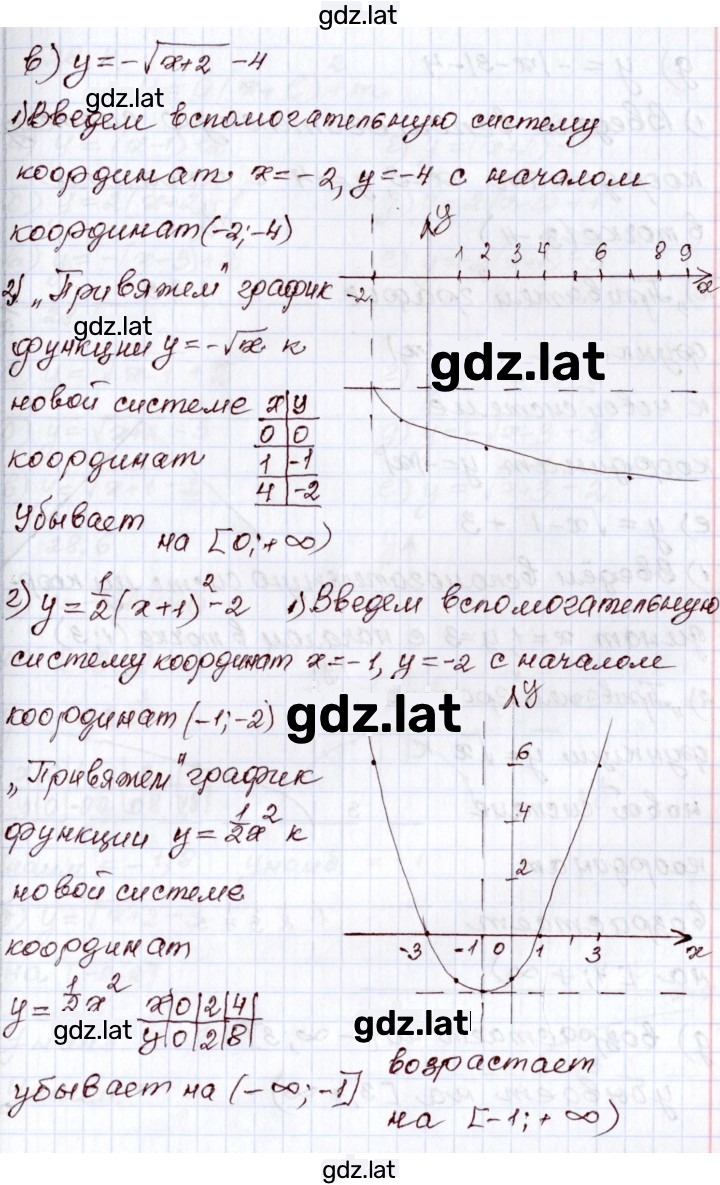 gdz.lat
в) y = -√x+2 - 4
gdz.lat
1) Введем вспомогательную систему
координат x = -2, y = -4 с началом
координат (-2; -4)
y
1 2 3 4 6 8 9
-2
x
2) „Привяжем" график
gdz.lat
функции y = -√x к
gdz.lat
новой системе
координат
x | y
0 | 0
1 | -1
4 | -2
Убывает
на [0; +∞)
г) y = 1/2 (x+1)² - 2 1) Введем вспомогательную
систему координат x = -1, y = -2 с началом
координат (-1; -2)
gdz.lat
y
„Привяжем" график
функции y = 1/2x² к
новой системе
координат
6
4
2
-3 -1 0 1 3 x
y = 1/2x²
x | 0 | 2 | 4 |
y | 0 | 2 | 8 |
gdz.lat
gdz.lat
убывает на (-∞; -1]
возрастает
на [-1; +∞)
gdz.lat